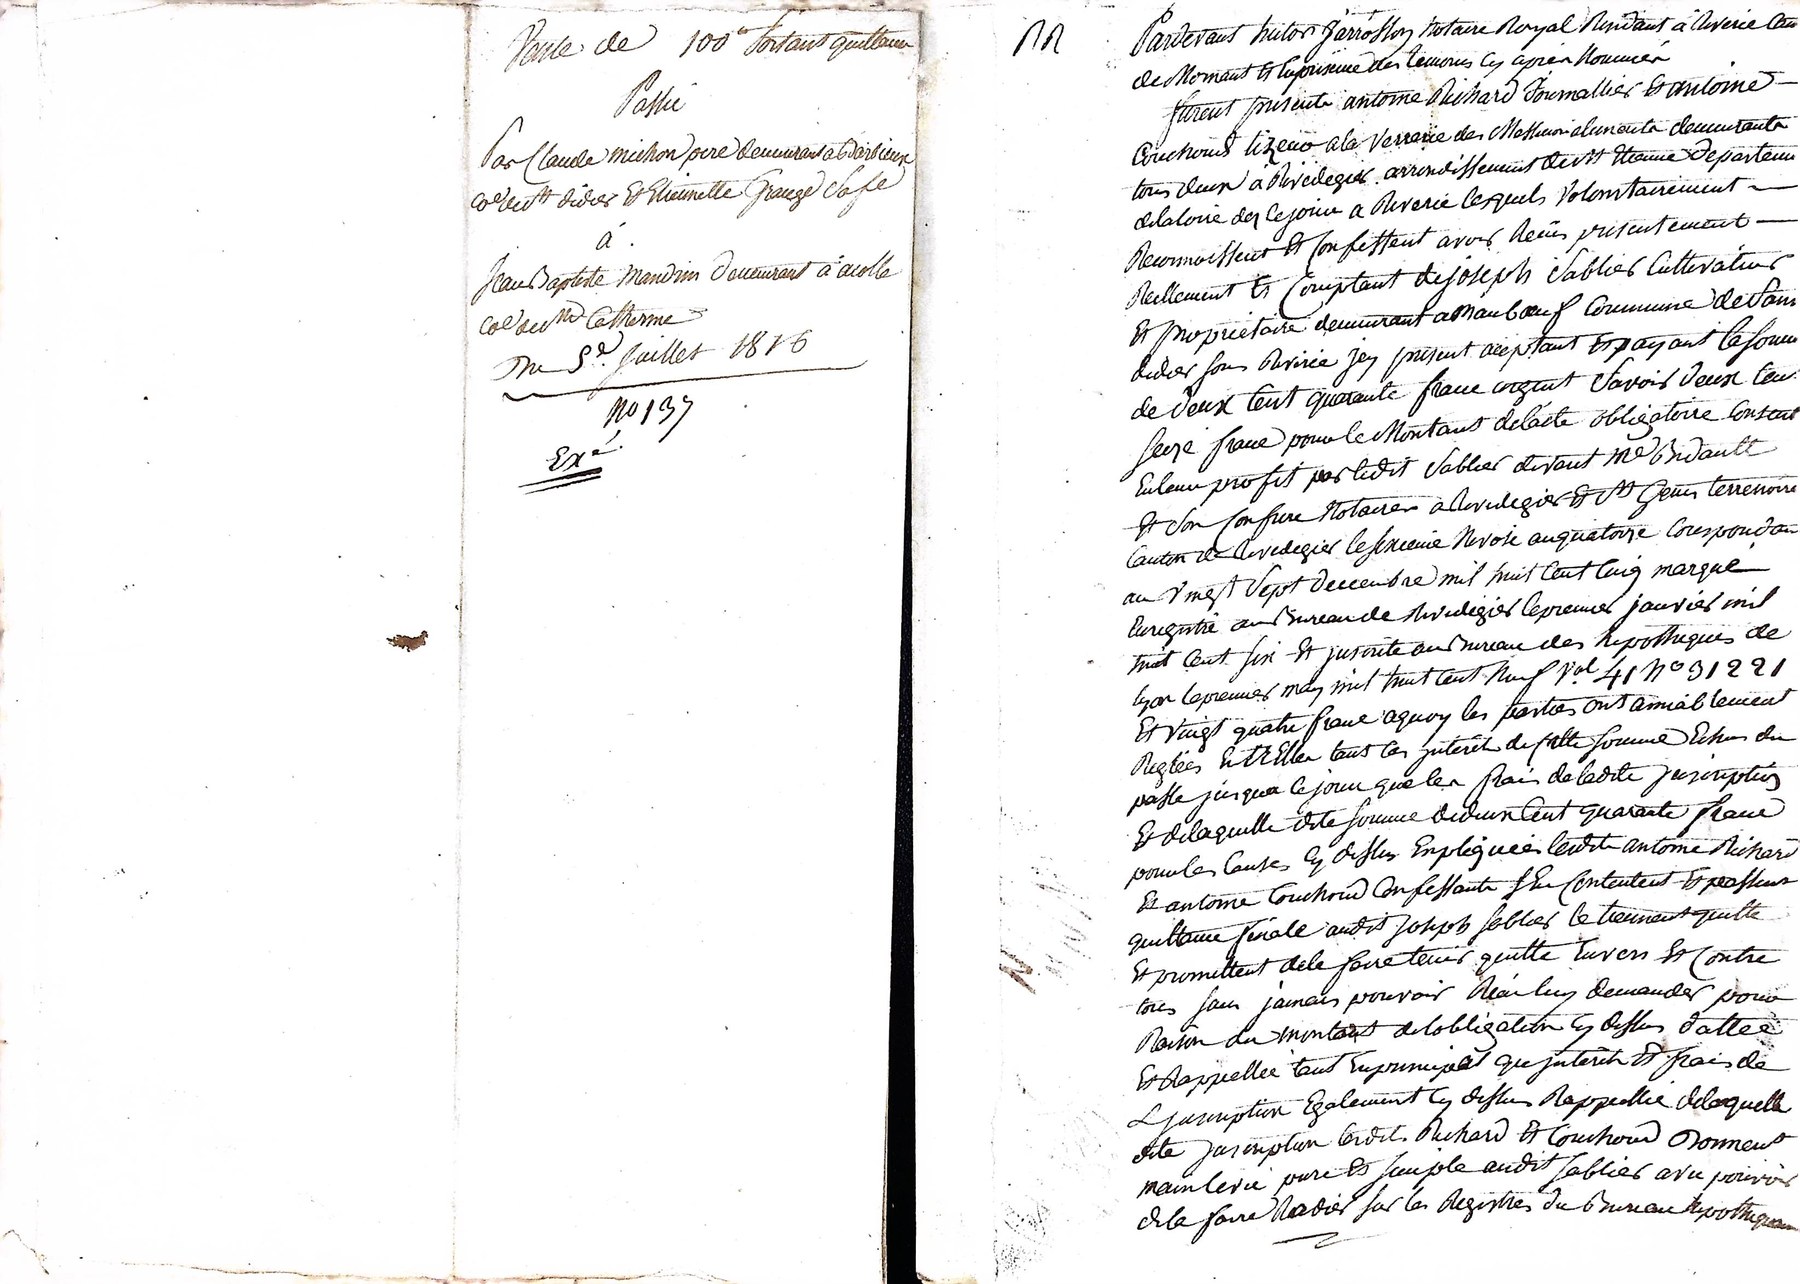 Vente de 100ᶠ Portant quittance
Passé
Par Claude michon pere demeurant a
coe de St didier Et Etiennette Grange Sa fe
à
Jean Baptiste Mandrin demeurant à
coe de Ste Catherine
Du 5e. Juillet 1816
No 137
Exé.
Pardevant Victor Jarrosson Notaire Royal Résidant à Riverie Can
de Mornant Et En présence des témoins Cy après Nommés
furent présents antoine Richard Et antoine
Couchoud tizeur a la Verrerie des demeurants
tous deux à Rivedegier arrondissement de St Etienne Departem
delaloire de ce jour a Riverie lesquels Volontairement
Reconnoissent Et Confessent avoir Reçus presentement
Réellement Et Comptant de joseph Sablier Cultivateur
Et propriétaire demeurant a Maubœuf Commune de Saint
didier sous Riverie jcy présent acceptant Et payant la Somme
de deux Cent quarante franc argent Savoir deux Cent
Seize franc pour le Montant delacte obligatoire Consent
En leur profit par ledit Sablier devant Me Bridault
Et Son Confrere Notaires a Rivedegier Et St Genis terrenoire
Canton de Rivedegier le sixieme Nivose an quatorze Correspondan
au Vingt Sept Decembre mil huit Cent Cinq marqué
Enregistré au Bureau de Rivedegier le premier janvier mil
huit Cent Six Et jnscrite au Bureau des hipothèques de
Lyon le premier may mil huit Cent Neuf Vol 41 No 31221
Et Vingt quatre franc aquoy les parties ont amiablement
Reglées Entr'Elles tant les jnterêts de cette somme Echus du
passé jusqua ce jour que les frais de ladite jnscription
Et delaquelle dite somme de deux Cent quarante franc
pour les Causes Cy dessus Expliquées lesdits antoine Richard
Et antoine Couchoud Confessants S'En Contentent Et passent
quittance finale audit joseph Sablier le tiennent quitte
Et promettent dele faire tenir quitte Envers Et Contre
tous sans jamais pouvoir Rien luy demander pour
Raison du montant de lobligation Cy dessus dattée
Et Rappellée tant En principal que jnterêts Et frais de
L jnscription Egalement Cy dessus Rappellée delaquelle
dite jnscription lesdits Richard Et Couchoud Donnent
main levée pure Et simple audit Sablier avec pouvoir
dela faire Radier sur les Registres du Bureau hipothequaire